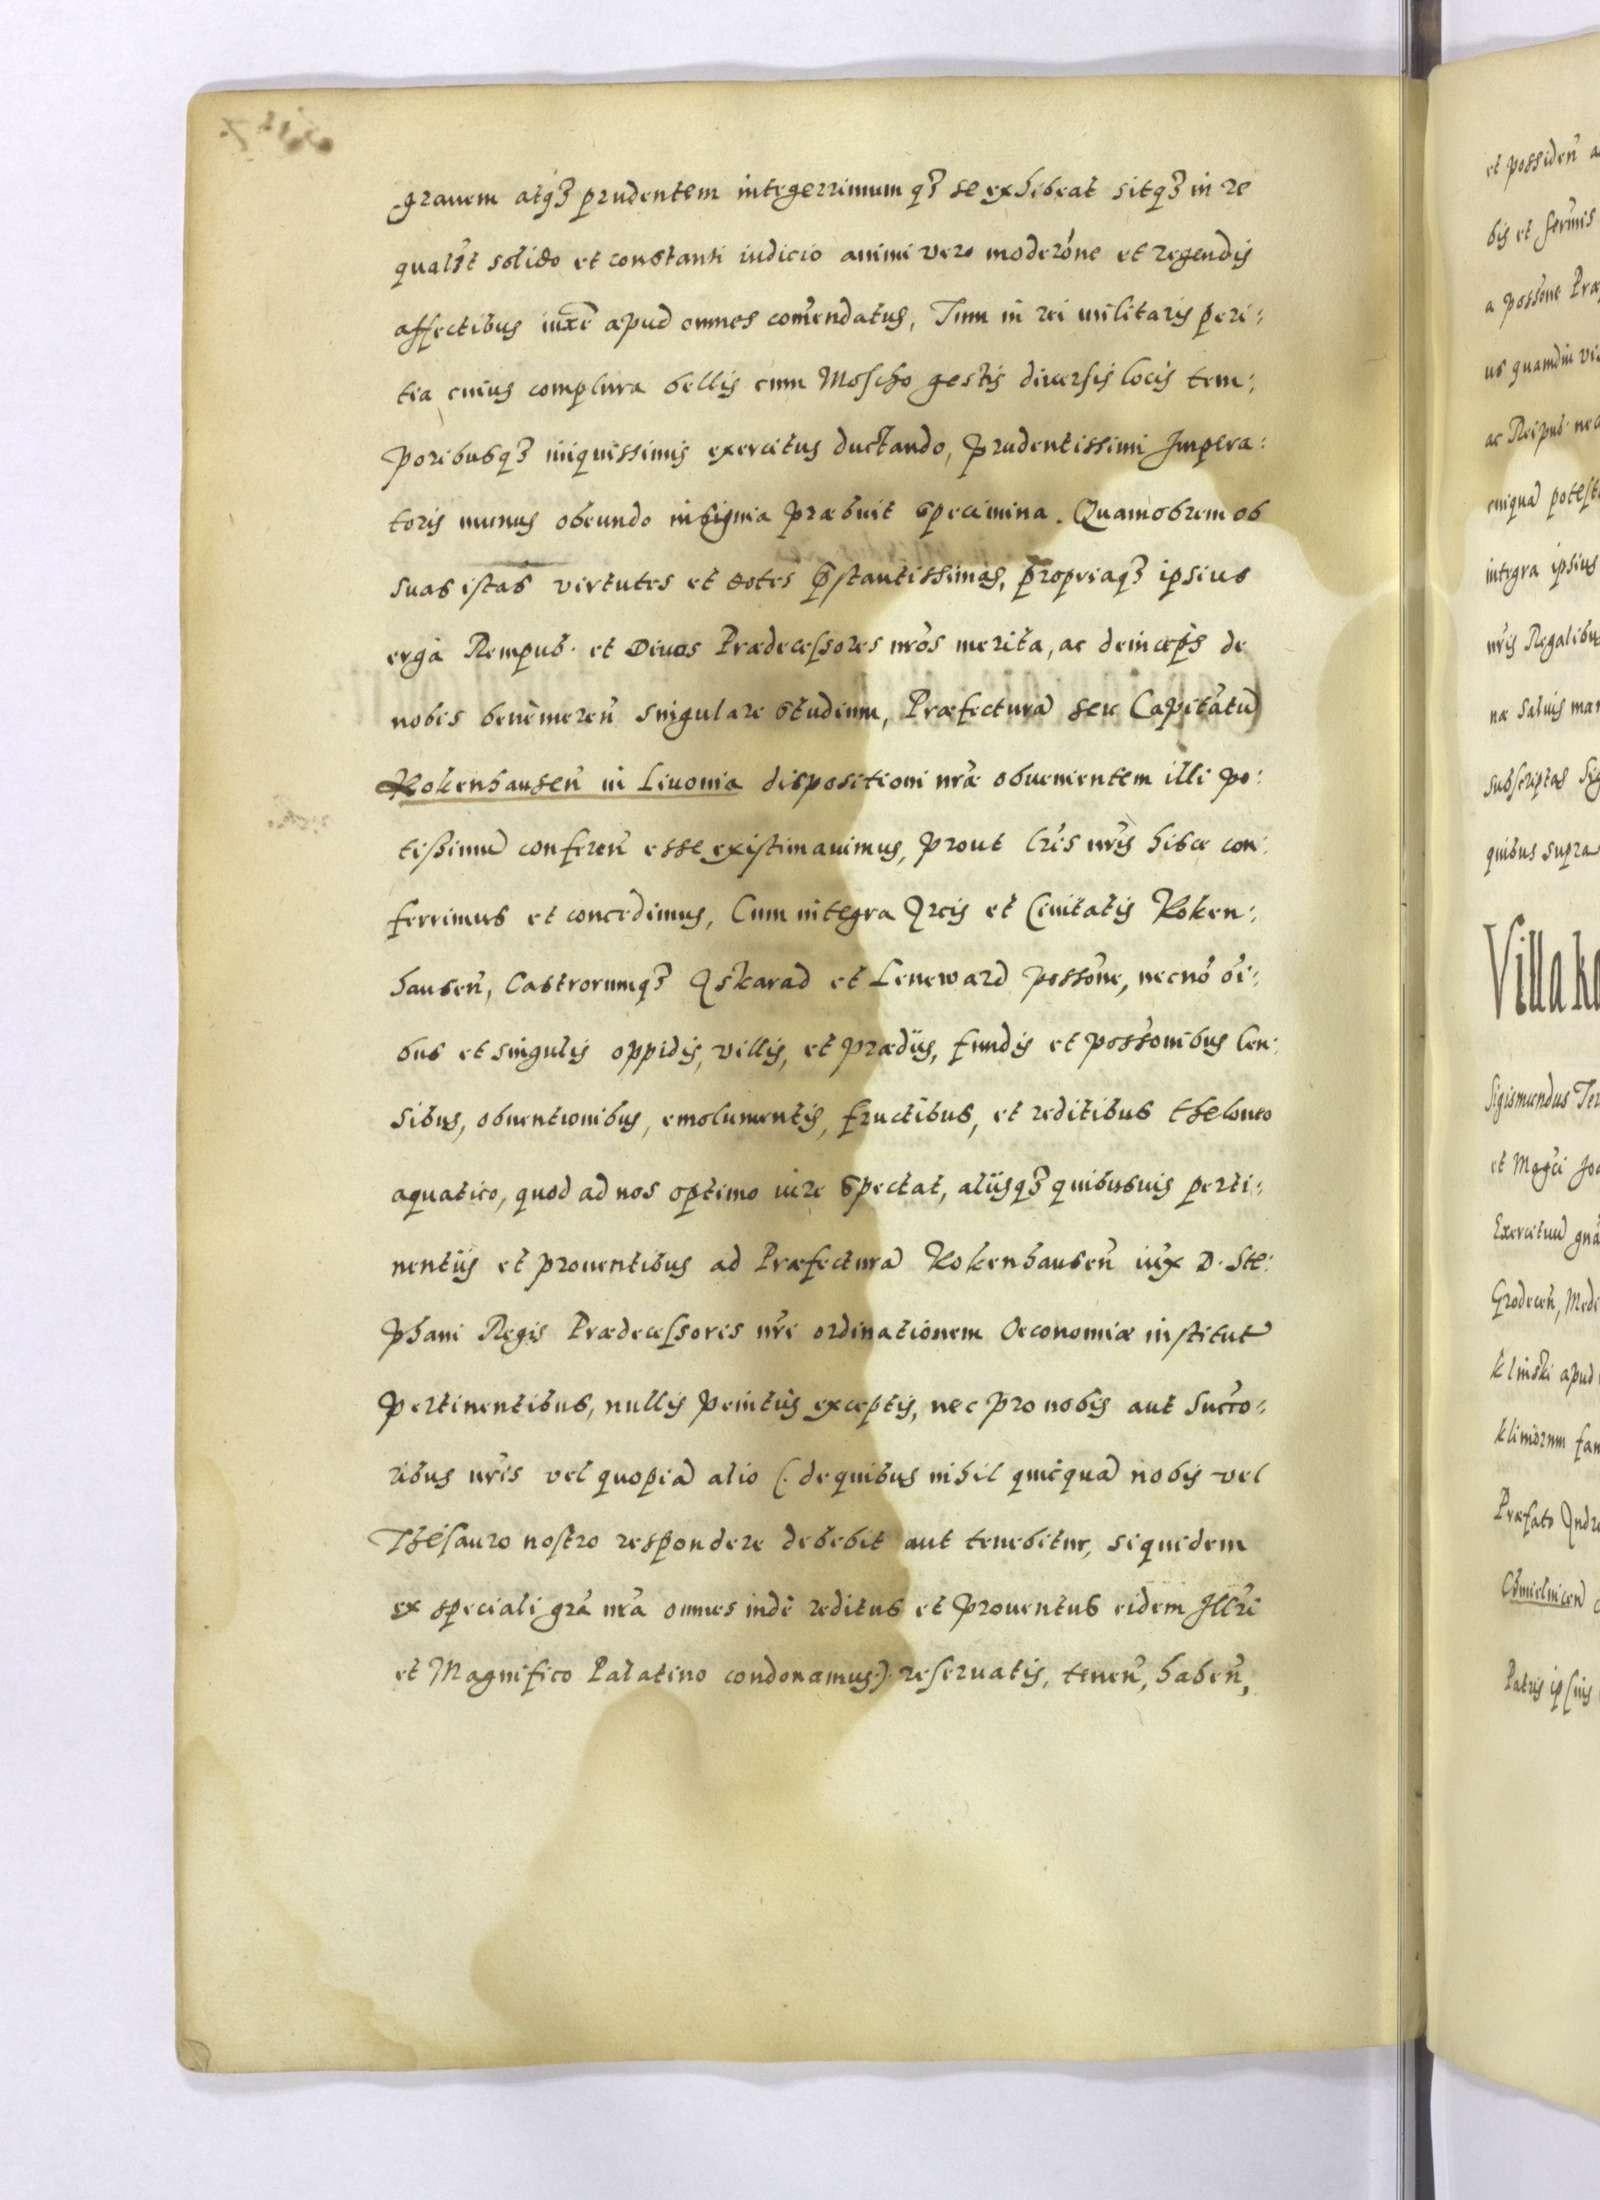 grauem atq3 prudentem integerrimum q3 se exhibeat sitq3 in re
qualt solido et constanti iudicio animi vero moderone et regendis
affectibus iuxe apud omnes comendatus, Tum in rei militaris peri:
tia cuius complura bellis cum Moscho gestis diuersis locis tem:
poribusq3 iniquissimis exercitus ductando, prudentissimi Impera:
toris munus obeundo insignia præbuit specimina. Quamobrem ob
suas istas virtutes et dotes pstantissimas, propriaq3 ipsius
ergà Rempub. et Diuos Prædecessores nros merita, ac deinceps de
nobis benèmeren singulare studium, Præfectura seu Capitatu
Kokenhausen in Liuonia dispositioni nræ obuenientem illi po:
tissimu conferen esse existimauimus, prout lris nris hisce con:
ferrimus et concedimus, Cum integra Arcis et Ciuitatis Koken:
hausen, Castrorumq3 Askarad et Leneward possone, necno oi:
bus et singulis oppidis, villis, et prædiis, fundis et possonibus Cen:
sibus, obuentionibus, emolumentis, fructibus, et reditibus theloneo
aquatico, quod ad nos optimo iure spectat, aliisq3 quibusuis perti:
nentiis et prouentibus ad Præfectura Kokenhausen iux D. Ste:
phani Regis Prædecessoris nri ordinationem Oeconomiæ institut
pertinentibus, nullis penitùs exceptis, nec pro nobis aut Succo:
ribus nris vel quopia alio (. de quibus nihil quicqua nobis vel
Thesauro nostro respondere debebit aut tenebitur, siquidem
ex speciali gra nra omnes indè reditus et prouentus eidem Illri
et Magnifico Palatino condonamus.) reseruatis, tenen, haben,
et possiden
bis et
a possone
us quamdiu
ac Reipub.
cuiqua
integra ipsius
nris Regalibus
næ saluis
subscriptas
quibus supra
Villa
Sigismundus
et Magci
Exercituu
Grodecen,
klinski apud
Præfato
Chmielnicen
Patris ipsius